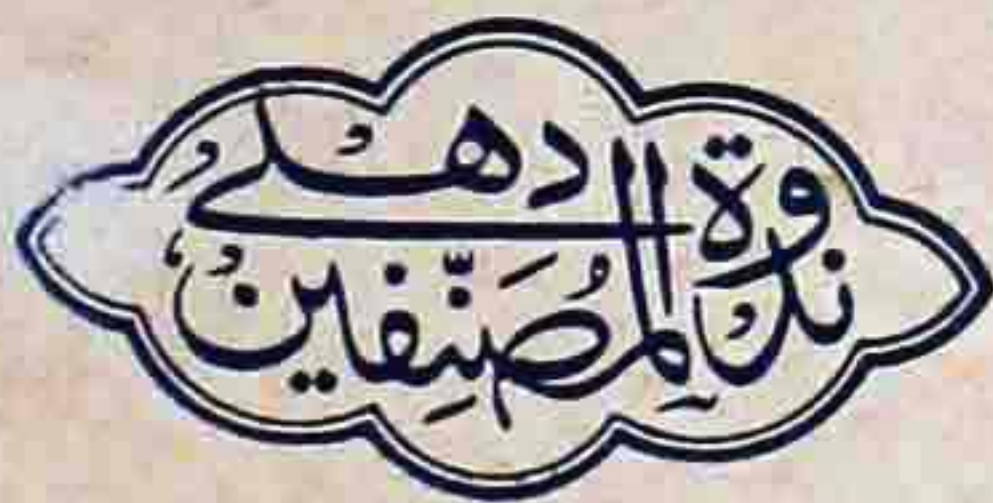 ندوة المُصَنِّفِينُ دهلی